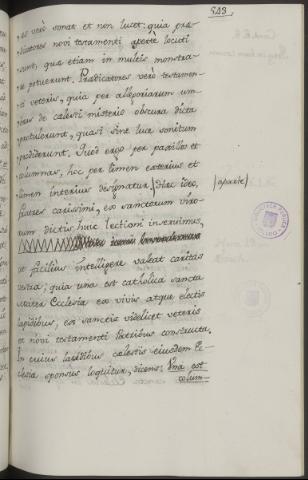 543.
nes verò sonat et non lucet: quia præ-
dicatores novi testamenti apertè locuti
sunt, qua etiam in multis monstra-
re potuerunt. Prædicatores verò testamen-
ti veteris, quia per allegoriarum um-
bras de cælesti misterio obscura dicta
protulerunt, quasi sine luce sonitum
reddiderunt. Quid ergo per postilles et
columnas, hoc per limen exterius et
limen interius designatur. Hæc ideo, (aparte)
fratres carissimi, ex sanctorum viro-
rum dictis huic lectioni inseruimus,
ut facilius intelligere valeat caritas
vestra; quia una est catholica sancta
mater Ecclesia ex vivis atque electis
lapidibus, ex sanctis videlicet veteris
et novi testamenti Patribus constructa.
In cuius laudibus cælestis eiusdem Ec-
clesiæ sponsus loquitur, dicens: Una est
colum-